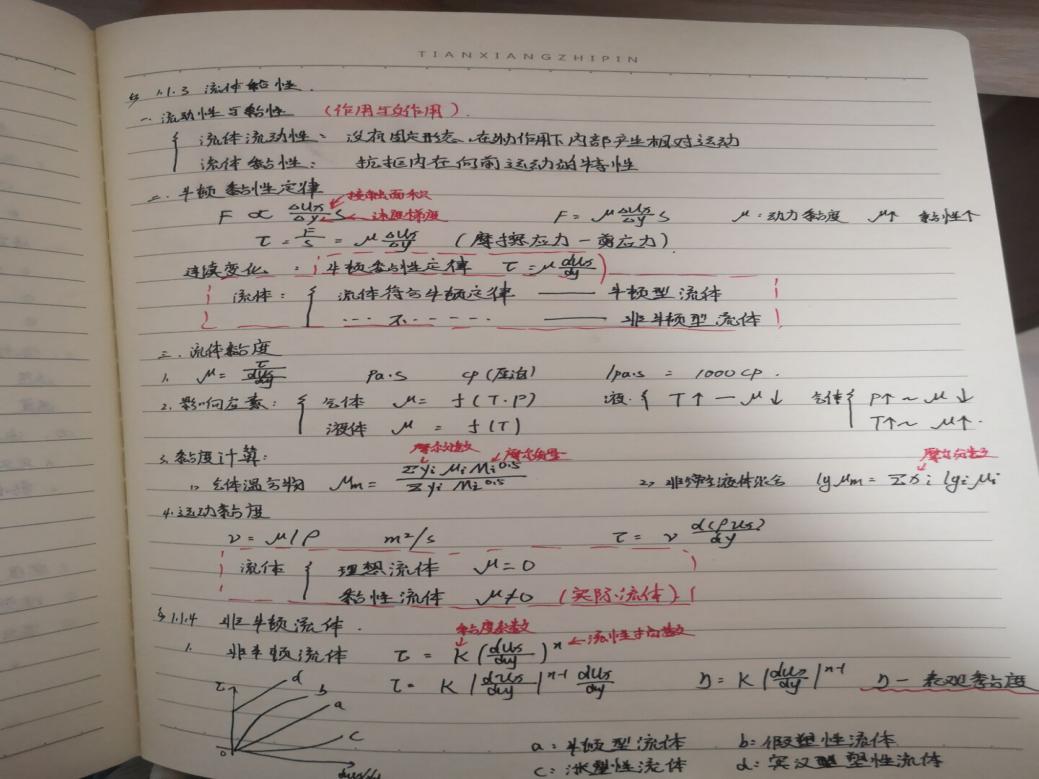 TIANXIANGZHIPIN
§ 1.1.3 流体黏性.
一. 流动性与黏性 (作用与反作用).
流体流动性: 没有固定形态、在外力作用下内部产生相对运动
流体黏性: 抗拒内在向前运动的特性
二. 牛顿黏性定律 接触面积
F ∝ Δux/Δy S 速度梯度 F = μ Δux/Δy S μ: 动力黏度 μ↑ 黏性↑
τ = F/S = μ Δux/Δy (摩擦应力—剪应力)
连续变化: 牛顿黏性定律 τ = μ dux/dy
流体: { 流体符合牛顿定律 —— 牛顿型流体
... 不 ..... —— 非牛顿型流体
三. 流体黏度
1. μ = τ / (dux/dy) Pa·s cp (厘泊) 1Pa·s = 1000 cp.
2. 影响因素: { 气体 μ = f (T·P) 液 { T↑ — μ↓ 气体 { P↑ ~ μ↓
液体 μ = f(T) T↑ ~ μ↑.
3. 黏度计算: 摩尔分数 摩尔质量 摩尔分数
1) 气体混合物 μm = Σyi μi Mi^0.5 / Σyi Mi^0.5 2) 非缔合液体混合 lg μm = Σxi lgi μi
4. 运动黏度
ν = μ/ρ m²/s τ = ν d(ρux)/dy
流体 { 理想流体 μ=0
黏性流体 μ≠0 (实际流体)
§ 1.1.4 非牛顿流体. 黏度系数
1. 非牛顿流体 τ = K (dux/dy)^n ← 流性指数
τ = K |dux/dy|^n-1 dux/dy η = K |dux/dy|^n-1 η — 表观黏度
τ d b a c 0 dux/dy
a: 牛顿型流体 b: 假塑性流体
c: 涨塑性流体 d: 宾汉型塑性流体